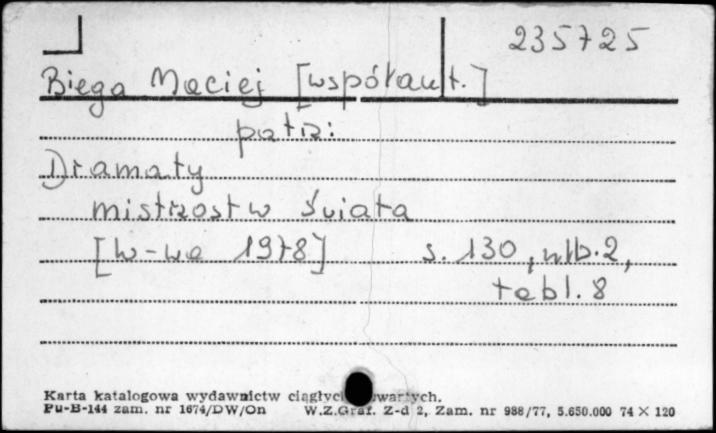 235725
Biega Maciej [współaut.]
patrz:
Dramaty
mistrzostw świata
[W-wa 1978] s. 130, nlb. 2,
tabl. 8
Karta katalogowa wydawnictw ciągłych
Pu-B-144 zam. nr 1674/DW/On W.Z.Graf. Z-d 2, Zam. nr 988/77, 5.650.000 74 X 120